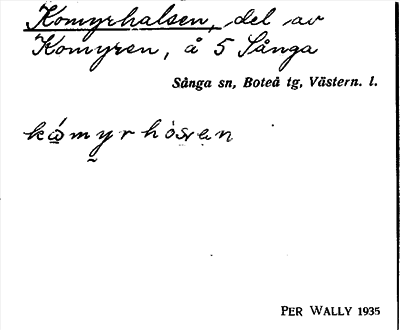 Komyrhalsen, del av
Komyren, å 5 Sånga
Sånga sn, Boteå tg, Västern. l.
PER WALLY 1935